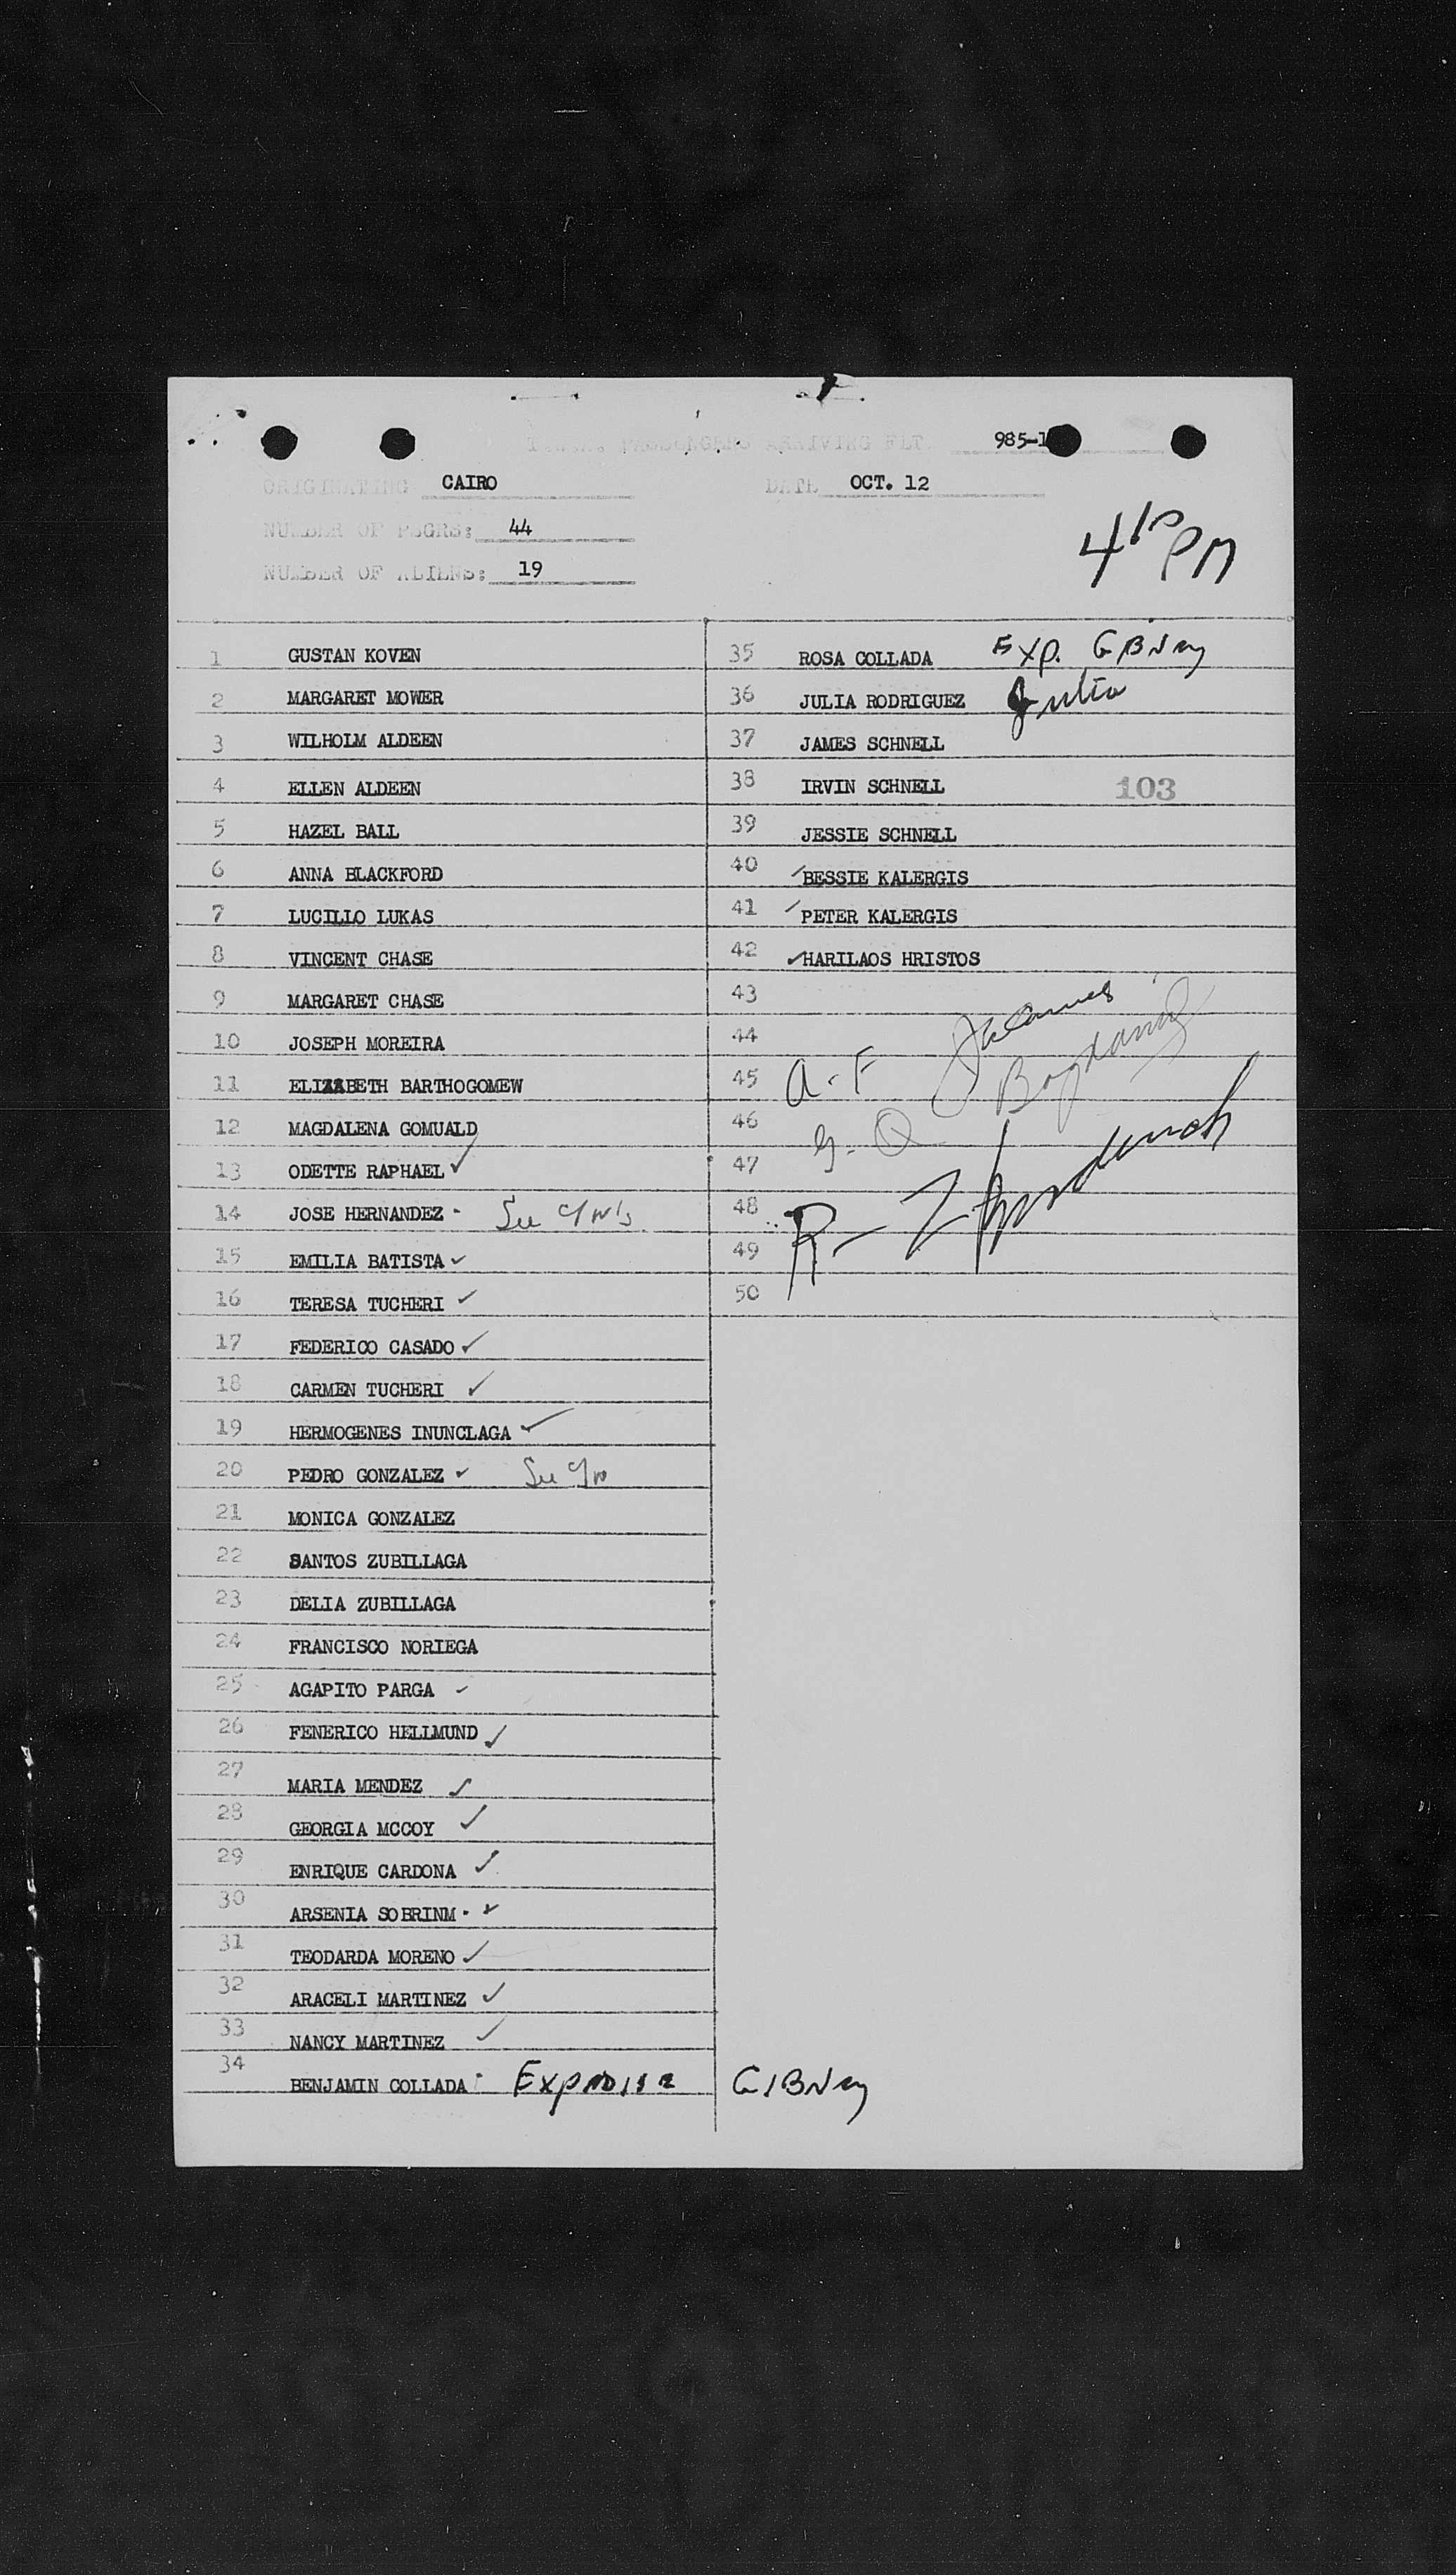 PASSENGERS ARRIVING FLT. 985-1
ORIGINATING CAIRO DATE OCT. 12
NUMBER OF PSGRS: 44
NUMBER OF ALIENS: 19
4 PM
1 GUSTAN KOVEN
2 MARGARET MOWER
3 WILHOLM ALDEEN
4 ELLEN ALDEEN
5 HAZEL BALL
6 ANNA BLACKFORD
7 LUCILLO LUKAS
8 VINCENT CHASE
9 MARGARET CHASE
10 JOSEPH MOREIRA
11 ELIZABETH BARTHOGOMEW
12 MAGDALENA GOMUALD
13 ODETTE RAPHAEL ✓
14 JOSE HERNANDEZ - See
15 EMILIA BATISTA ✓
16 TERESA TUCHERI ✓
17 FEDERICO CASADO ✓
18 CARMEN TUCHERI ✓
19 HERMOGENES INUNCLAGA ✓
20 PEDRO GONZALEZ ✓ See
21 MONICA GONZALEZ
22 SANTOS ZUBILLAGA
23 DELIA ZUBILLAGA
24 FRANCISCO NORIEGA
25 AGAPITO PARGA ✓
26 FENERICO HELLMUND ✓
27 MARIA MENDEZ ✓
28 GEORGIA MCCOY ✓
29 ENRIQUE CARDONA ✓
30 ARSENIA SOBRINM ✓
31 TEODARDA MORENO ✓
32 ARACELI MARTINEZ ✓
33 NANCY MARTINEZ ✓
34 BENJAMIN COLLADA
35 ROSA COLLADA Exp.
36 JULIA RODRIGUEZ Julia
37 JAMES SCHNELL
38 IRVIN SCHNELL 103
39 JESSIE SCHNELL
40 ✓ BESSIE KALERGIS
41 ✓ PETER KALERGIS
42 ✓ HARILAOS HRISTOS
43
44
45 A - F
46 G - Q
47
48 R - Z
49
50